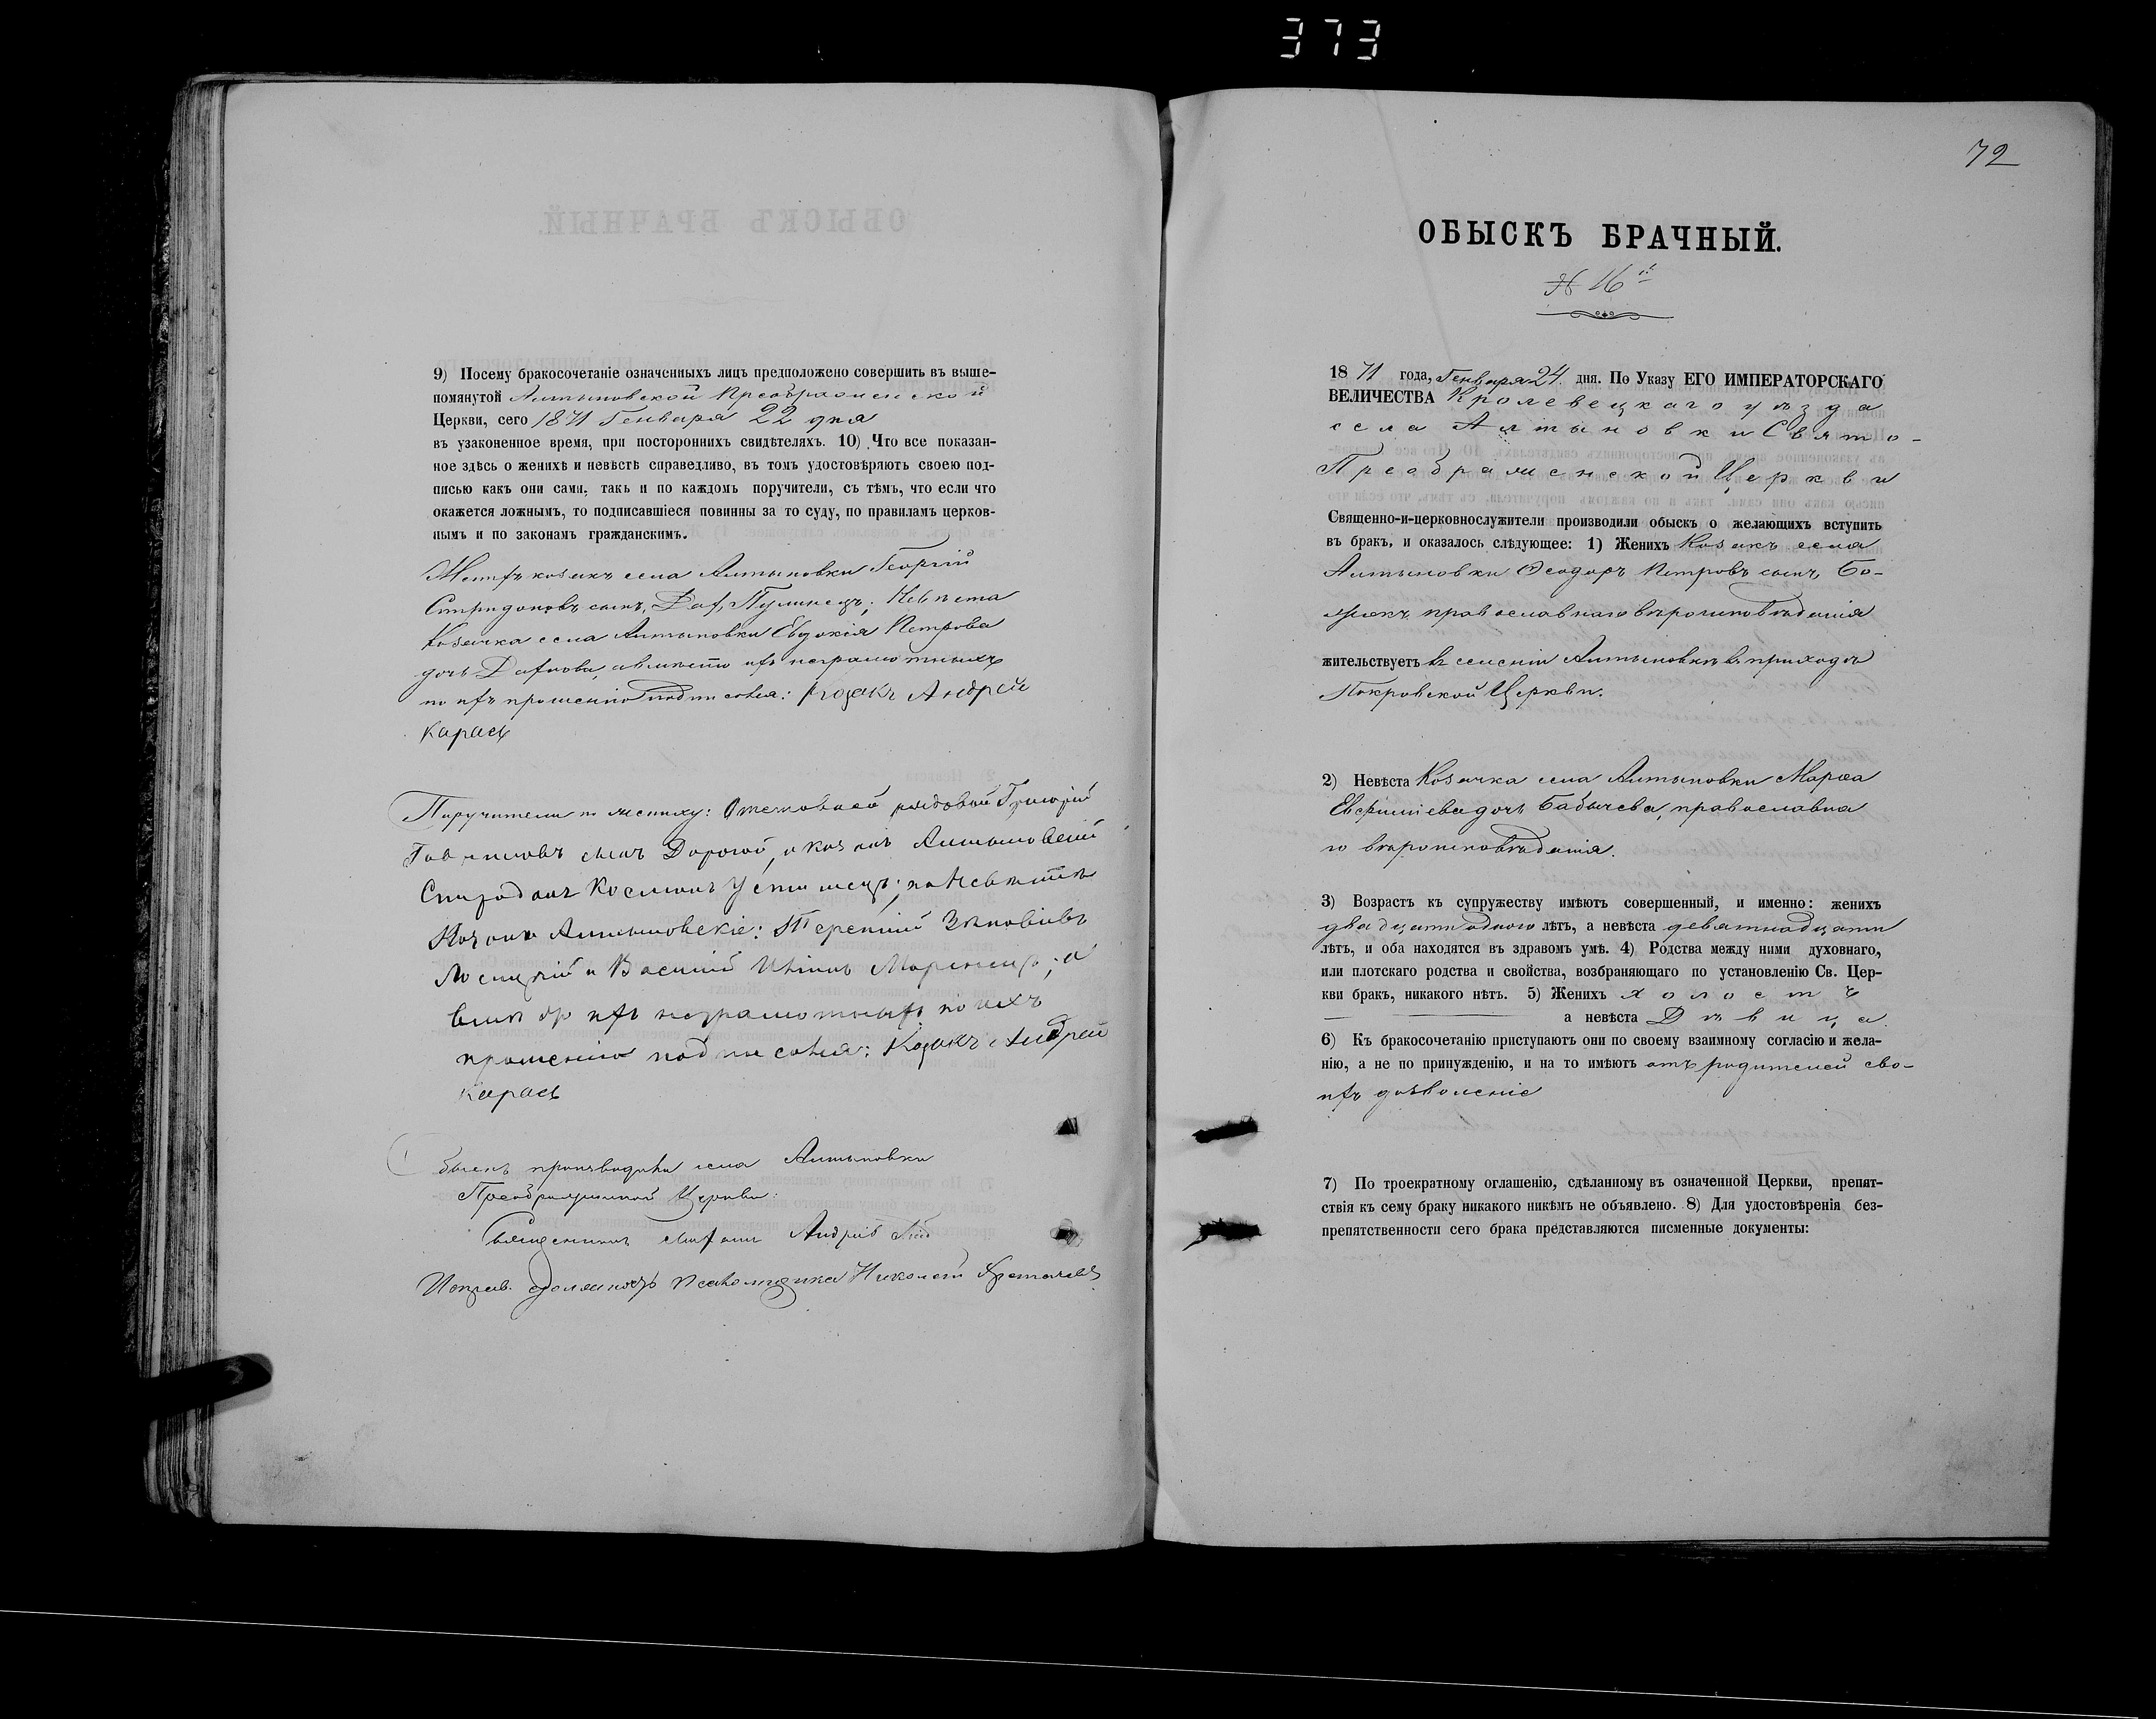 373
9) Посему бракосочетаніе означенныхъ лицъ предположено совершить въ выше-
помянутой Алтыновской Преображенской
Церкви, сего 1871 Генваря 22 дня
въ узаконенное время, при постороннихъ свидѣтеляхъ. 10) Что все показан-
ное здѣсь о женихѣ и невѣстѣ справедливо, въ томъ удостовѣряютъ своею под-
писью какъ они сами, такъ и по каждомъ поручители, съ тѣмъ, что если что
окажется ложнымъ, то подписавшіеся повинны за то суду, по правиламъ церков-
нымъ и по законамъ гражданскимъ.
Женихъ козакъ села Алтыновки Георгій
сынъ, Невѣста
Козачка села Алтыновки Евдокія Петрова
дочь а вмѣсто ихъ неграмотныхъ
по ихъ прошенію подписался: Козакъ Андрей
Карась
Поручители по жениху: рядовой Григорій
сынъ Дорогой, и козакъ Алтыновскій
Козьминъ по Невѣстѣ
Козаки Алтыновскіе: Терентій
и Василій а
вмѣсто ихъ неграмотныхъ по ихъ
прошенію подписался: Козакъ Андрей
Карась
Обыскъ производили села Алтыновки
Преображенской Церкви:
Священникъ
Исправ. должность Псаломщика Николай
72
ОБЫСКЪ БРАЧНЫЙ.
№ 16й
1871 года, Генваря 24 дня. По Указу ЕГО ИМПЕРАТОРСКАГО
ВЕЛИЧЕСТВА Кролевецкаго уѣзда
села Алтыновки Свято-
Преображенской Церкви
Священно-и-церковнослужители производили обыскъ о желающихъ вступить
въ бракъ, и оказалось слѣдующее: 1) Женихъ Козакъ села
Алтыновки Ѳеодоръ Петровъ сынъ, Бо-
жокъ православнаго вѣроисповѣданія
жительствуетъ въ селеніи Алтыновкѣ въ приходѣ
Покровской Церкви.
2) Невѣста Козачка села Алтыновки Марѳа
Евфиміева дочь Бабичева, православна
го вѣроисповѣданія.
3) Возрастъ къ супружеству имѣютъ совершенный, и именно: женихъ
двадцати одного лѣтъ, а невѣста девятнадцати
лѣтъ, и оба находятся въ здравомъ умѣ. 4) Родства между ними духовнаго,
или плотскаго родства и свойства, возбраняющаго по установленію Св. Цер-
кви бракъ, никакого нѣтъ. 5) Женихъ холостъ
а невѣста Дѣвица
6) Къ бракосочетанію приступаютъ они по своему взаимному согласію и жела-
нію, а не по принужденію, и на то имѣютъ отъ родителей сво-
ихъ дозволеніе
7) По троекратному оглашенію, сдѣланному въ означенной Церкви, препят-
ствія къ сему браку никакого никѣмъ не объявлено. 8) Для удостовѣренія без-
препятственности сего брака представляются писменные документы: